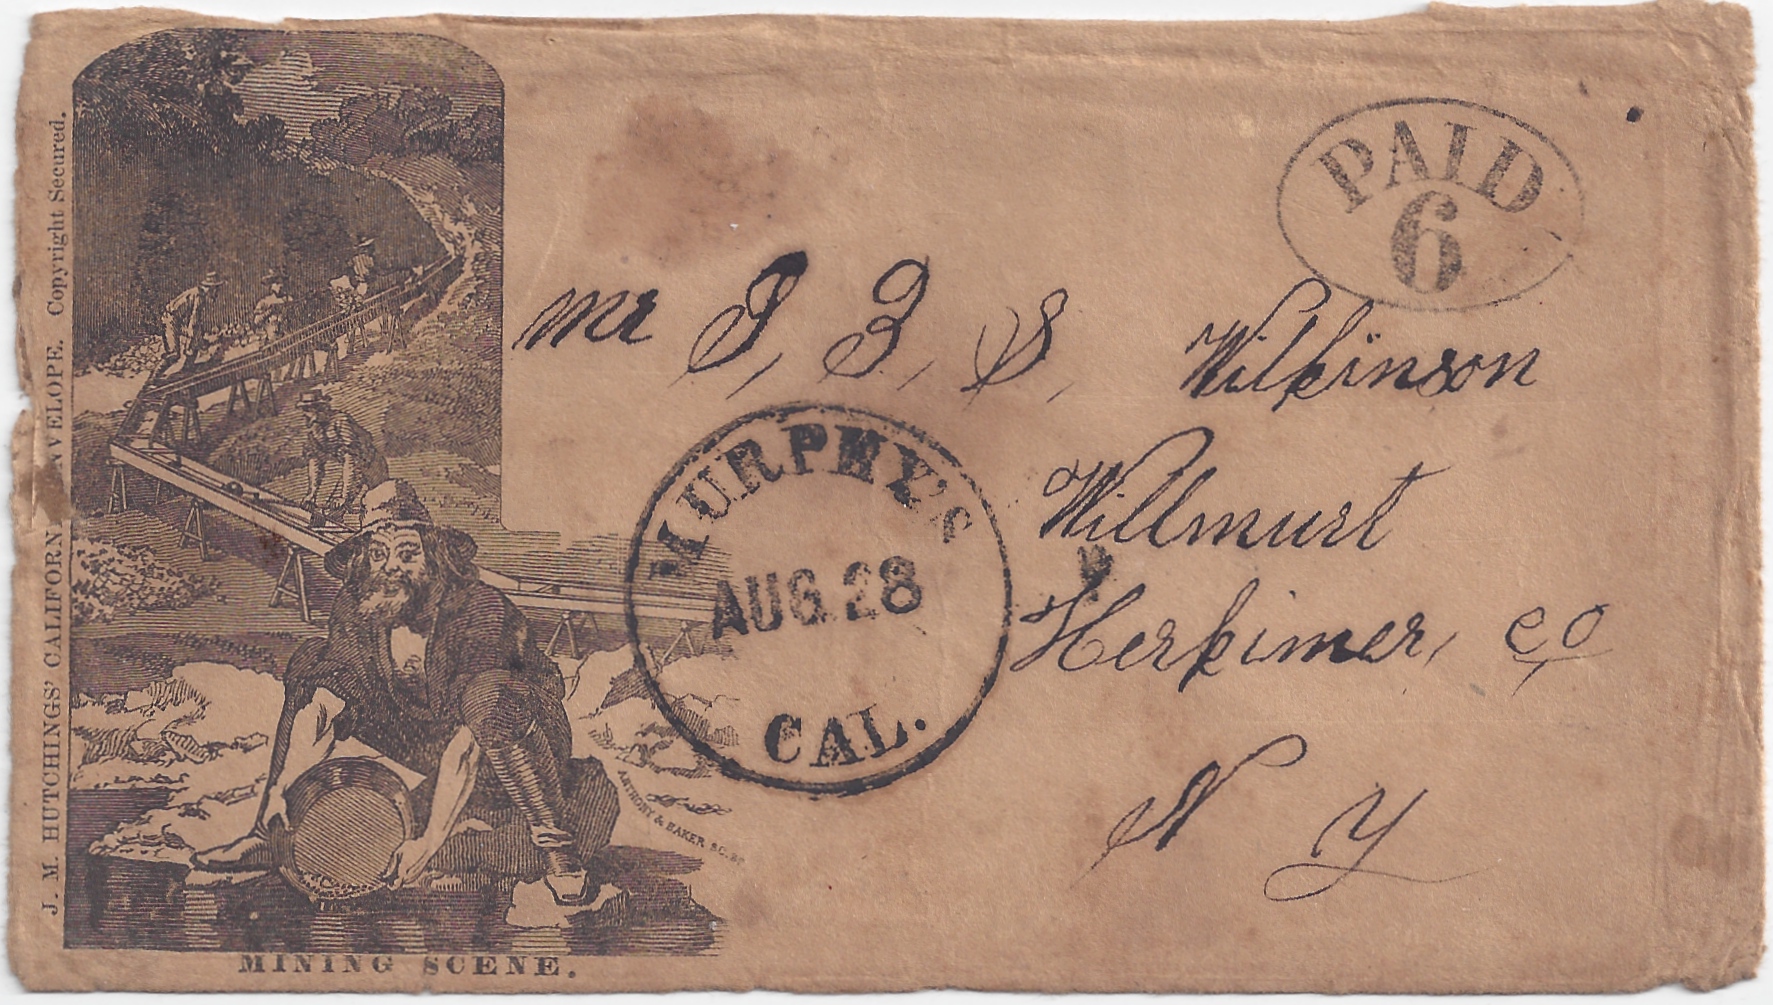 J. M. HUTCHINGS' CALIFORN NVELOPE. Copyright Secured.
PAID
6
Mr J, Z, S, Wilkinson
MURPHY'S
AUG. 28
CAL.
Willmurt
Herkimer, co
N Y
ANTHONY & BAKER SC.
MINING SCENE.